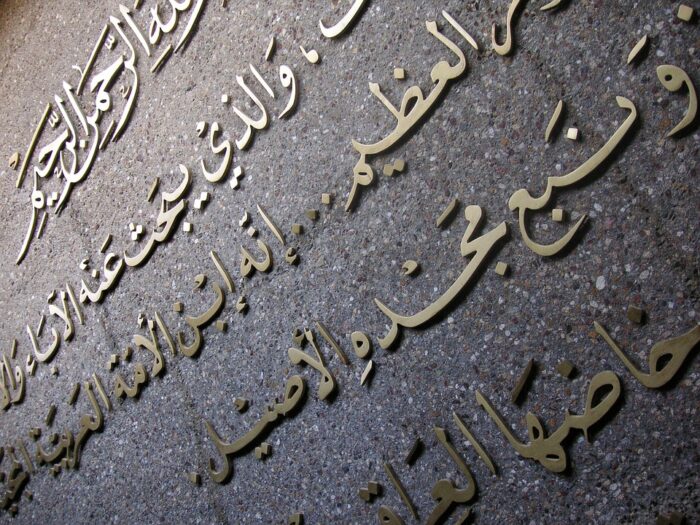 الله الرَّحمن الرَّحيم
وَالذيْ يبحث عَنْه الآباء
العظيم ... إنه إبْن الأمة العَربيَة
وَ نَبع مجَدْهِ الأصيْل.
خاضهَا العراق